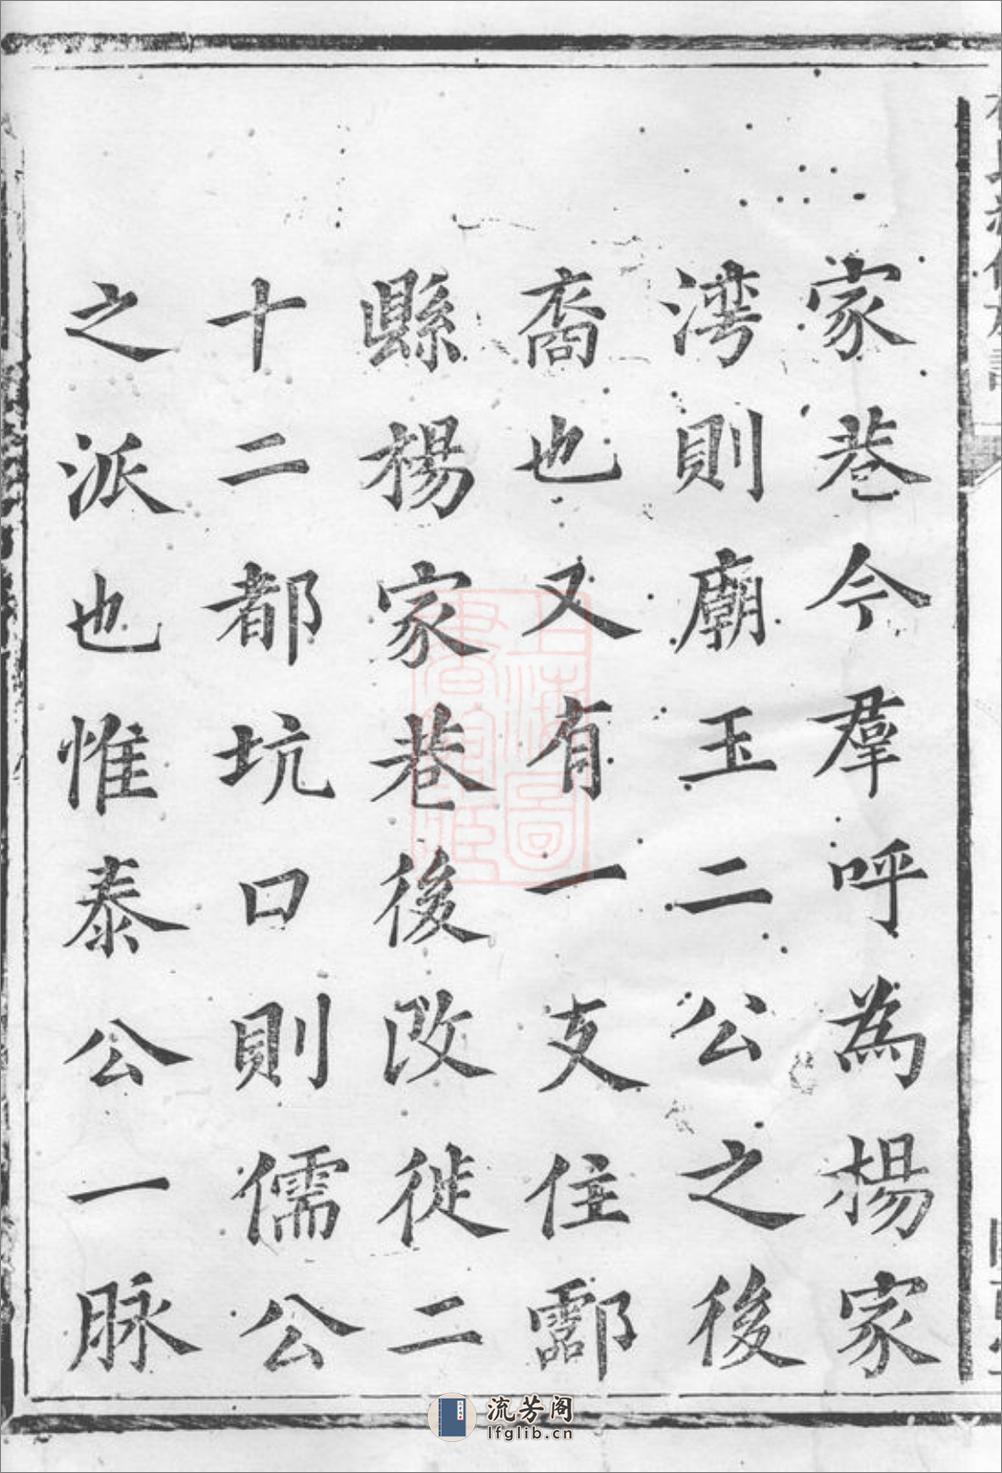 家巷今羣呼為楊家
湾則廟玉二公之後
裔也又有一支住酃
縣楊家巷後改徙二
十二都坑口則儒公
之派也惟泰公一脉
上海圖書館藏
流芳阁
lfglib.cn